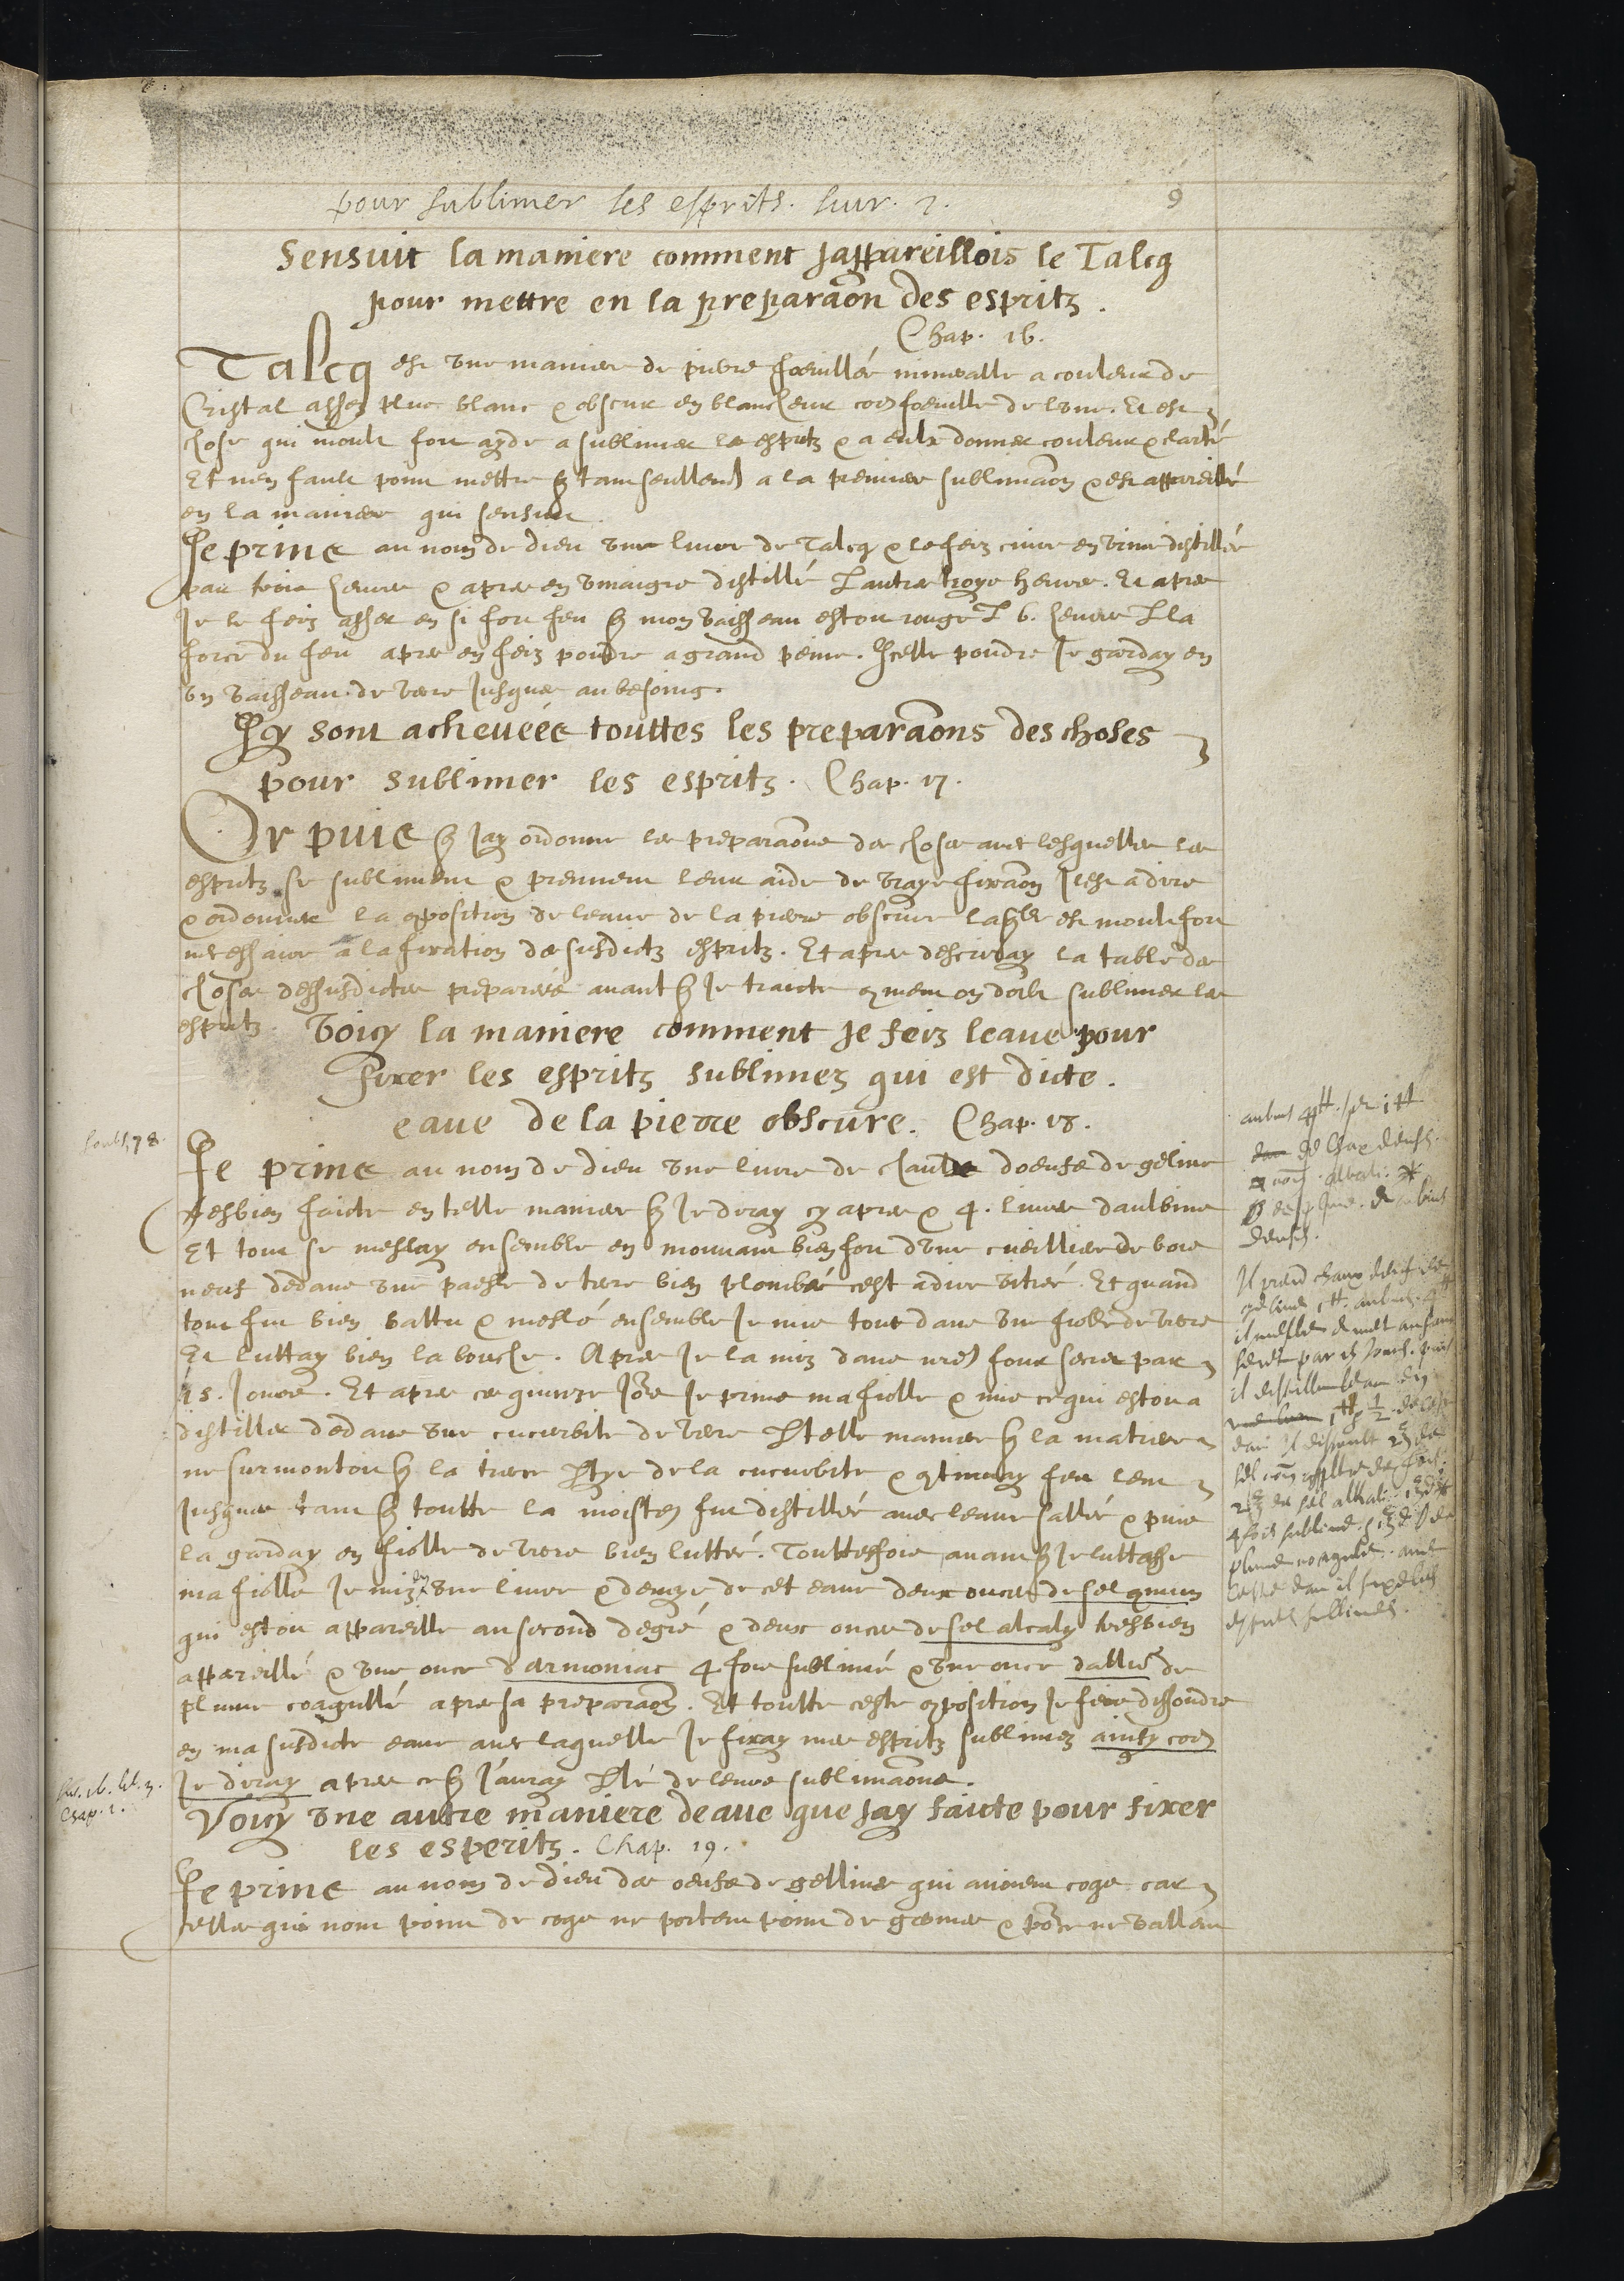 pour sublimer les esprits. liur. 2.
9
Sensuit la maniere comment jappareillois le Talcq
pour mettre en la preparaõn des espritz.
Chap. 16.
Talcq est vne maniere de pierre foeuillée mineralle a couleur de
Cristal assez plus blanc & obscur en blancheur com̃ foeuille de lune. Et est
chose qui moult fort ayde a sublimer les espritz & a eulx donner couleur & clarté
Et nen fault point mettre q̃ tant seullem̃ a la premiere sublimaõn & est appareillé
en la maniere qui sensuit.
Je prins au nom de dieu vne liure de Talcq & le feiz cuire en vrine distillée
par trois heures & apres en vinaigre distillé lautre troys heures. Et apres
Je le feiz asser en si fort feu q̃ mon vaisseau estoit rouge P 6. heures P la
force du feu apres en feiz poudre a grand peine. Icelle poudre Je garday en
vn vaisseau de verre jusques au besoing.
Icy sont acheuéés touttes les preparaõns des choses
pour sublimer les espritz. Chap. 17.
Or puis q̃ Jay ordonné les preparaõns des choses auec lesquelles les
espritz se subliment & prennent leur aide de vraye fixaõn Jl est a dire
& ordonner la 9position de leaue de la pierre obscure laq̃lle est moult fort
necessaire a la fixation des susdictz espritz. Et apres descriray la table des
choses dessusdictes preparéés auant q̃ Je traicte 9ment on doibt sublimer les
espritz.
Voicy la maniere comment Je feiz leaue pour
fixer les espritz sublimez qui est dicte.
eaue de la pierre obscure. Chap. 18.
Je prins au nom de dieu vne liure de chaulx doeufs de geline
tresbien faicte en telle maniere q̃ Je diray cy apres & 4. liures daulbins
Et tout se meslay ensemble en mouuant bien fort dune cueilliere de bois
neuf dedans vne paesle de terre bien plombéé cest a dire vitréé. Et quand
tout fut bien battu & meslé ensemble Je mis tout dans vne fiolle de verre
Et luttay bien la bouche. Apres Je la miz dans nr̃e four secret par
15. Jours. Et apres ces quinze Jo^rs Je prins ma fiolle & mis ce qui estoit a
distiller dedans vne cucurbite de verre P telle maniere q̃ la matiere
ne surmontoit q̃ la tierce Ptye de la cucurbite & 9tinuay feu lent
Jusques tant q̃ toutte la moisteur fut distillée auec leaue sallée & puis
la garday en fiolle de verre bien luttée. Touttesfois auant q̃ Je luttasse
ma fiolle Je miz en vne liure & demye de cet eaue deux onces de sel 9mun
qui estoit appareillé au second degré & deux onces de sel alcaly tresbien
appareillé & vne once d armoniac 4 fois sublimé & vne once dallun de
plume coagullé apres sa preparaõn. Et toutte ceste 9position Je feis dissoudre
en ma susdicte eaue auec laquelle Je fixay mes espritz sublimez ainsy com̃
Je diray apres ce q̃ J'auray Plé de leurs sublimaõns.
Voicy vne autre maniere deaue que Jay faicte pour fixer
les esperitz. Chap. 19.
Je prins au nom de dieu des oeufs de gellines qui auoient coqs car
celles qui nont point de coqs ne portent point de germes & po^r ce ne vallent
Chap. 1.
Il prend chaux doeufs de
gelines 1 ℔. aubins. 4 ℔
il mesle & met au four
secret par 15 jours. puis
il distille
1 ℔ 1/2. de ceste
eau il dissoult 2 ℥ de
2 ℥ de sel alkali. 1 ℥ d ✱
4 fois sublimé.
plume coagulé. auec
ceste eau il fixe les
esprits sublimés.